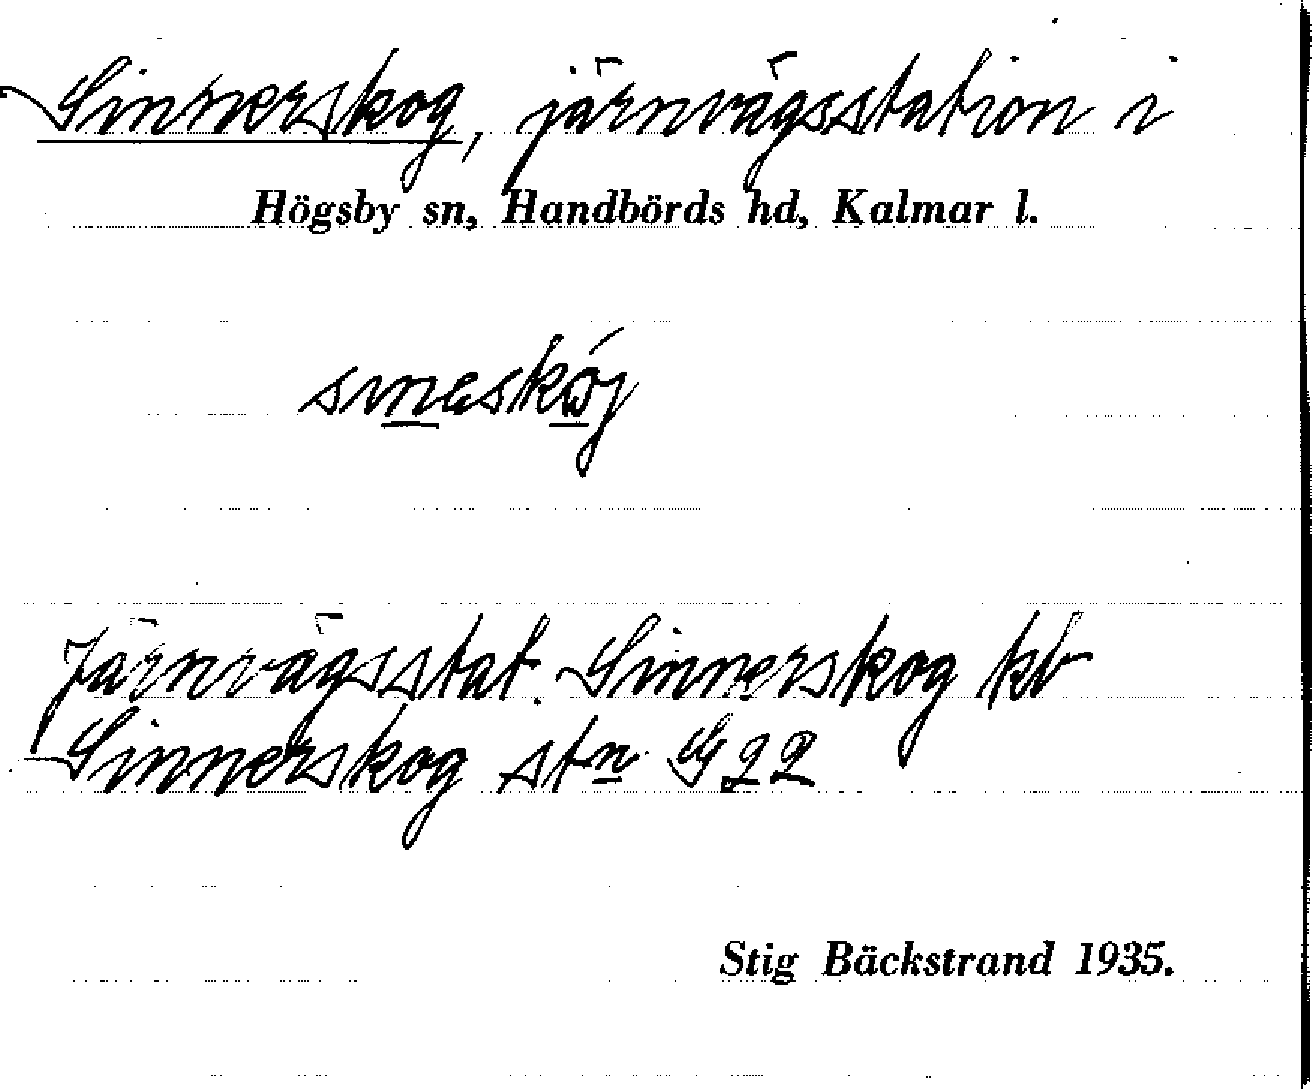 Sinnerskog, järnvägsstation i
Högsby sn, Handbörds hd, Kalmar l.
Järnvägsstat. Sinnerskog kb
Sinnerskog stn G 22
Stig Bäckstrand 1935.